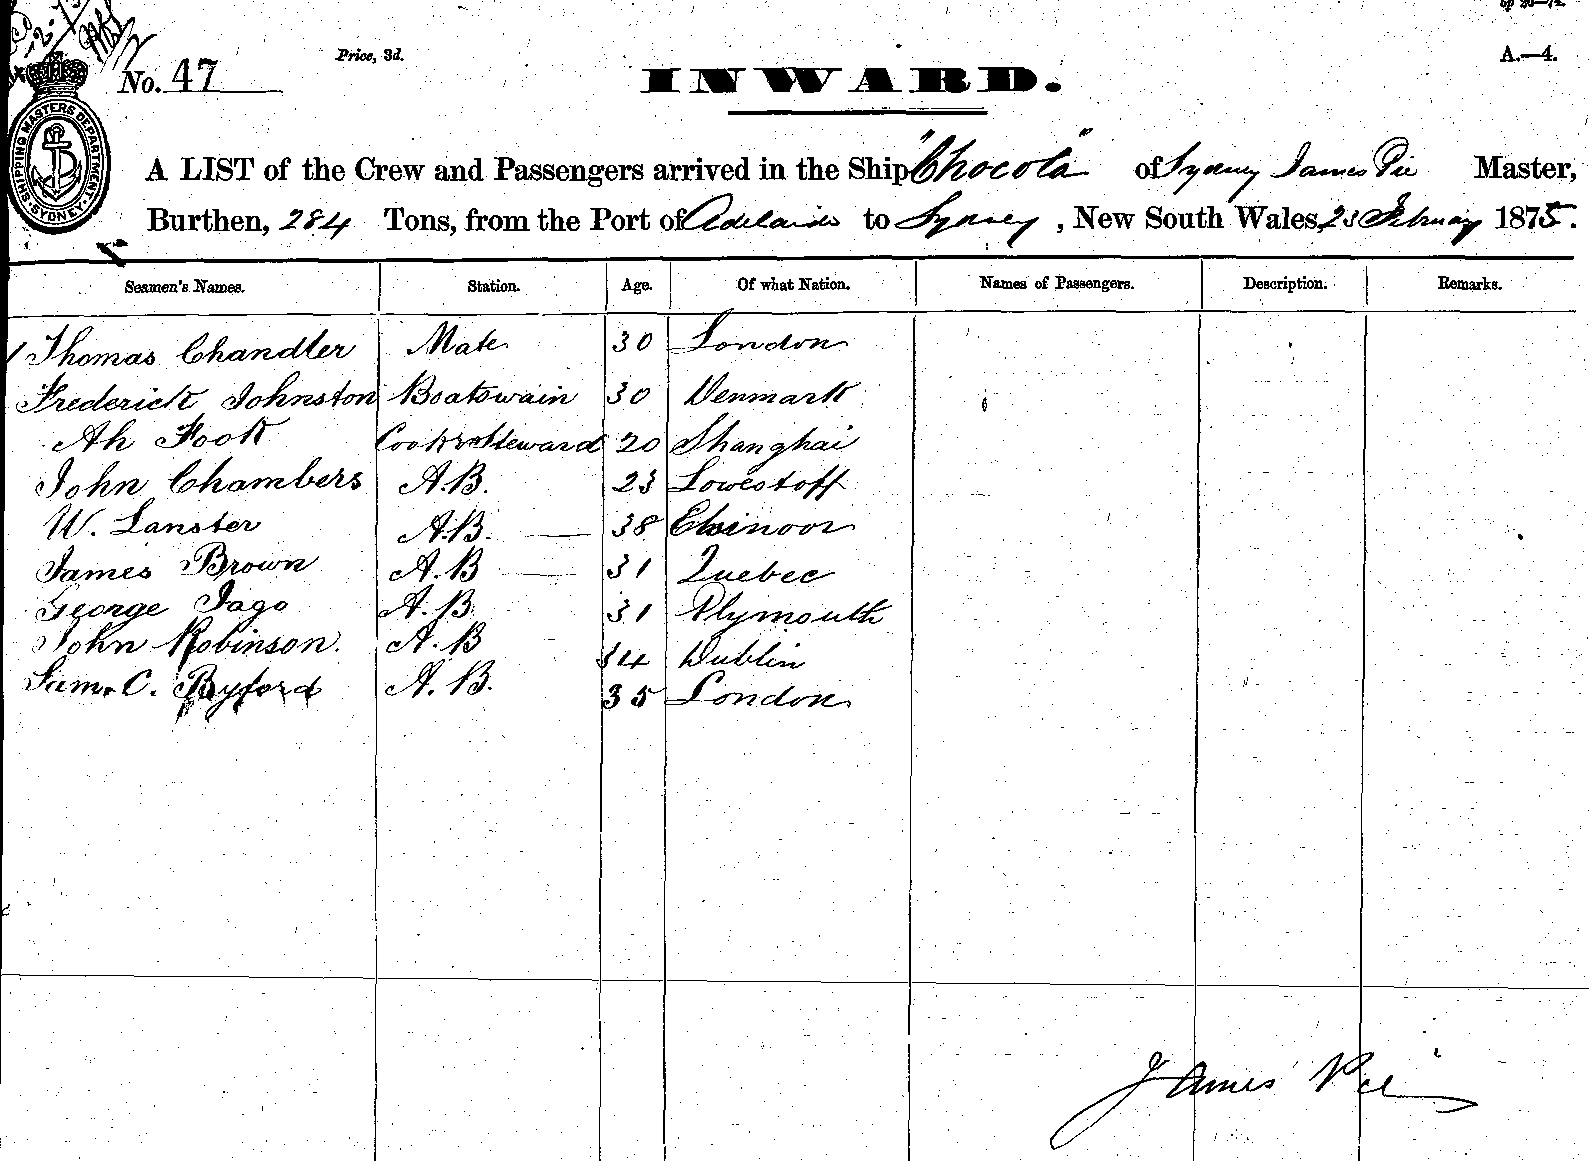 op 20—74.
A.—4.
Price, 3d.
No. 47
INWARD.
SHIPPING MASTERS DEPARTMENT SYDNEY
A LIST of the Crew and Passengers arrived in the Ship "Chocola" of Sydney James Pie Master,
Burthen, 284 Tons, from the Port of Adelaide to Sydney, New South Wales, 23 February 1875.
Seamen's Names. Station. Age. Of what Nation. Names of Passengers. Description. Remarks.
Thomas Chandler Mate 30 London
Frederick Johnston Boatswain 30 Denmark
Ah Fook Cook & Steward 20 Shanghai
John Chambers A.B. 23 Lowestoff
W. Lanster A.B. 38 Elsinoor
James Brown A.B 31 Quebec
George Jago A.B 31 Plymouth
John Robinson. A.B 34 Dublin
Saml C. Byford A.B. 35 London
James Pie